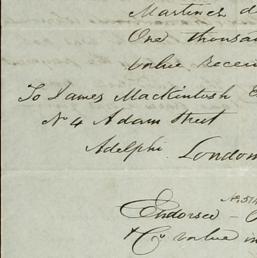 Martinez d
One thousan
value recei
To James Mackintosh E
No 4 Adam Street
Adelphi London
Endorsed -
& Co. value in